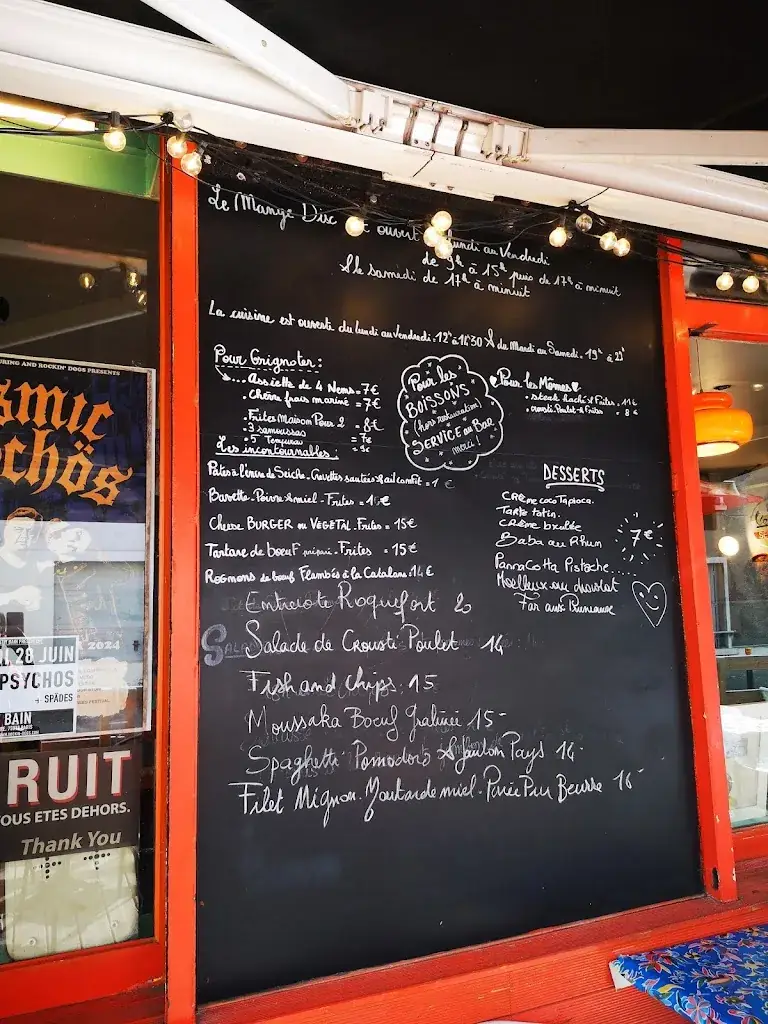 Le Mange Disc est ouvert lundi au Vendredi
de 9h à 15h puis de 17h à minuit
& le samedi de 17h à minuit
La cuisine est ouverte du lundi au vendredi. 12h à 14h30 & du Mardi au Samedi. 19h à 22h
Pour Grignoter:
Assiette de 4 Nems = 7€
Chèvre frais mariné = 7€
Frites Maison Pour 2 = 8€
3 samoussas = 7€
5 Tempura = 9€
Pour les
BOISSONS
(hors restauration)
SERVICE au BAR
merci!
Pour les Mômes
steak haché & Frites. 11€
crousti Poulet & Frites. 8€
Les incontournables:
Pâtes à l'encre de Seiche. Crevettes sautées & ail confit = 1 €
Bavette. Poivre & miel - Frites =
Cheese BURGER ou VEGETAL. Frites = 15€
Tartare de boeuf - Frites = 15€
Rognons de boeuf Flambés à la Catalane. 14€
DESSERTS
Crème coco Tapioca.
Tarte tatin.
Crème brulée
Baba au Rhum
Pannacotta Pistache
Moelleux au chocolat
Far aux Pruneaux
7€
Entrecote Roquefort 20
Salade de Crousti Poulet 14
Fish and chips 15
Moussaka Boeuf Gratinée 15-
Spaghetti Pomodoro & Jambon Pays 14-
Filet Mignon. Moutarde miel. Purée Pur Beurre 16-
URING AND ROCKIN' DOGS PRESENTS
smic
chös
2024
28 JUIN
PSYCHOS
+ SPÄDES
BAIN
RUIT
OUS ETES DEHORS.
Thank You